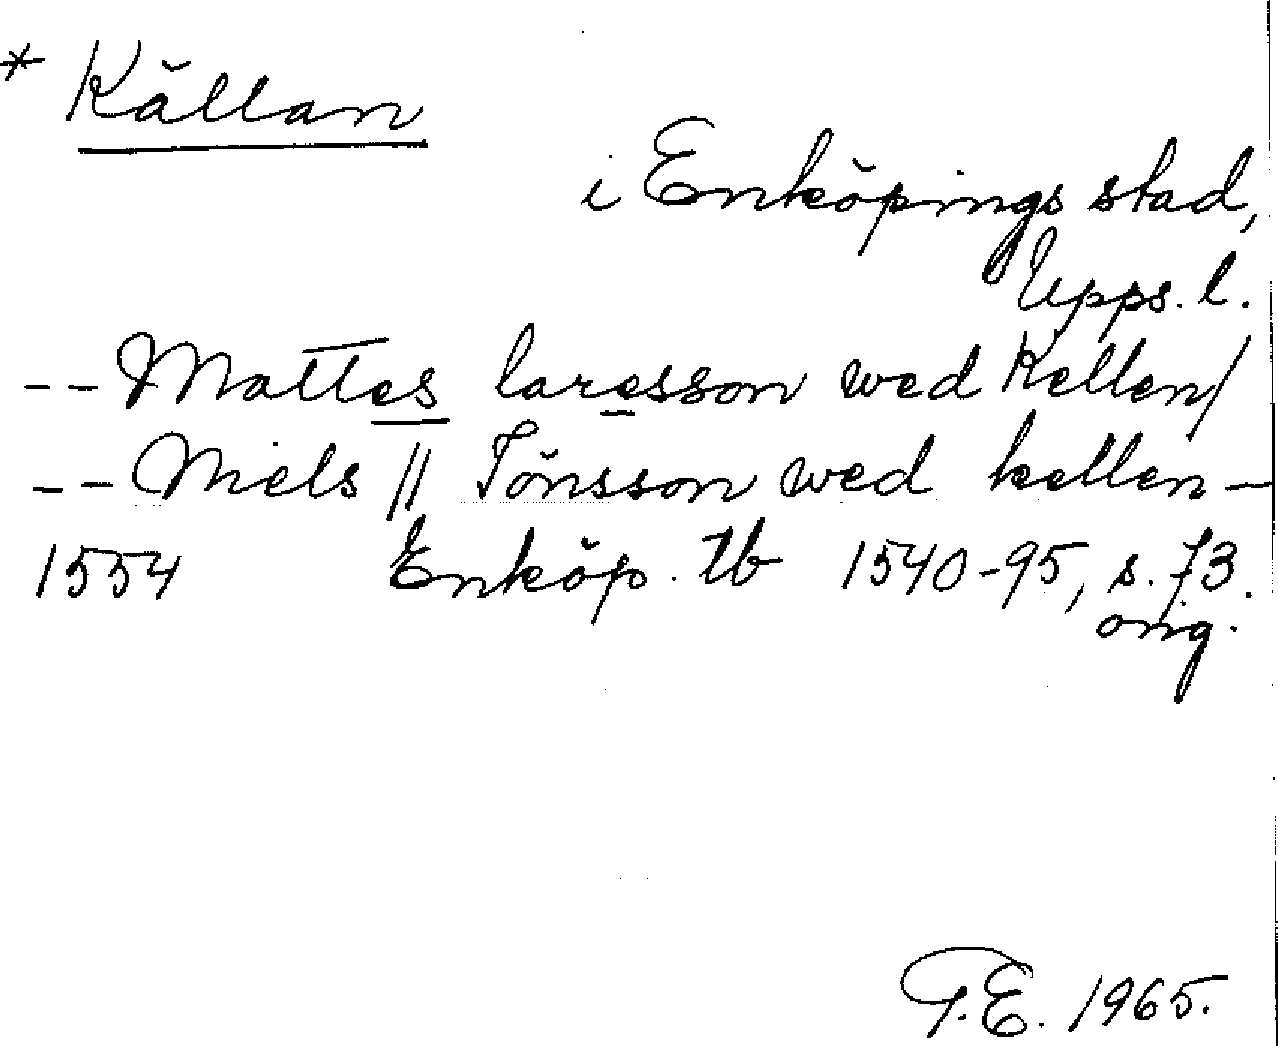 * Källan
i Enköpings stad,
Upps. l.
-- Mattes laresson wed Kellen/
-- Niels // Tönsson wed kellen -
1554 Enköp. tb 1540-95, s. 73.
orig.
T.E. 1965.